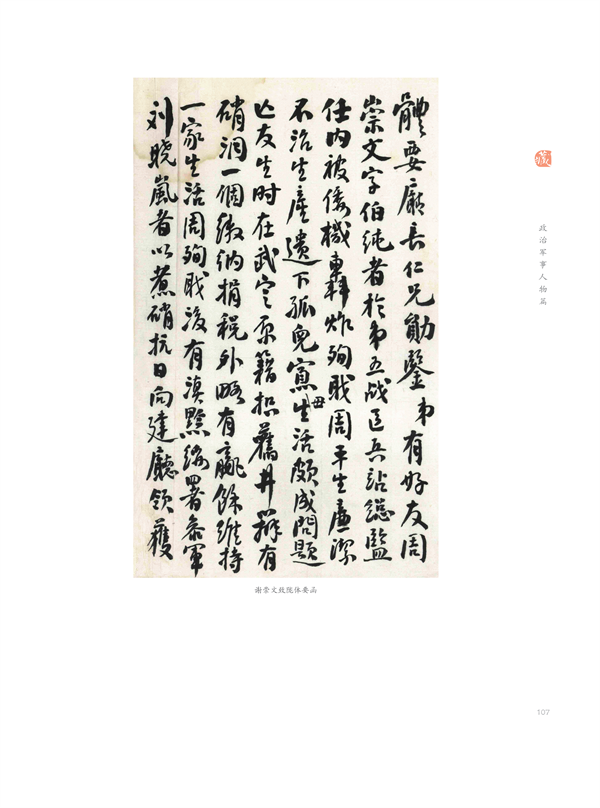 體要廳長仁兄勛鑒弟有好友周
崇文字伯純者於第五战区兵站總監
任内被倭機轟炸殉职周平生廉潔
不治生產遺下孤兒寡母生活頗成問題
亡友生时在武定原籍招舊井辦有
硝洞一個繳納捐稅外略有贏餘維持
一家生活周殉职後有滇黔綏署參軍
刘曉嵐者以煮硝抗日向建廳領獲
谢崇文致阮体要函
政治军事人物篇
107